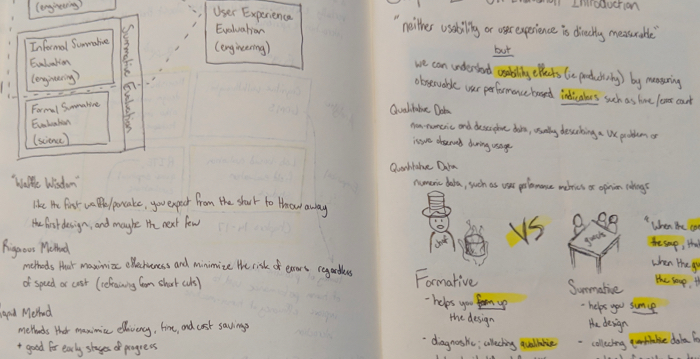 (engineering)
Informal Summative
Evaluation
(engineering)
Formal Summative
Evaluation
(science)
Summative Evaluation
User Experience
Evaluation
(engineering)
"Waffle Wisdom"
like the first waffle/pancake, you expect from the start to throw away
the first design, and maybe the next few
Rigorous Method
methods that maximize effectiveness and minimize the risk of errors regardless
of speed or cost (refraining from short cuts)
Rapid Method
methods that maximize efficiency, time, and cost savings
+ good for early stages of progress
Introduction
"neither usability or user experience is directly measurable"
but
we can understand usability effects (ie productivity) by measuring
observable user performance-based indicators such as time/error count
Qualitative Data
non-numeric and descriptive data, usually describing a UX problem or
issue observed during usage
Quantitative Data
numeric data, such as user performance metrics or opinion ratings
chef
VS
guests
"When the
the soup, the
when the
the soup, th
Formative
- helps you form up
the design
- diagnostic; collecting qualitative
Summative
- helps you sum up
the design
- collecting quantitative data